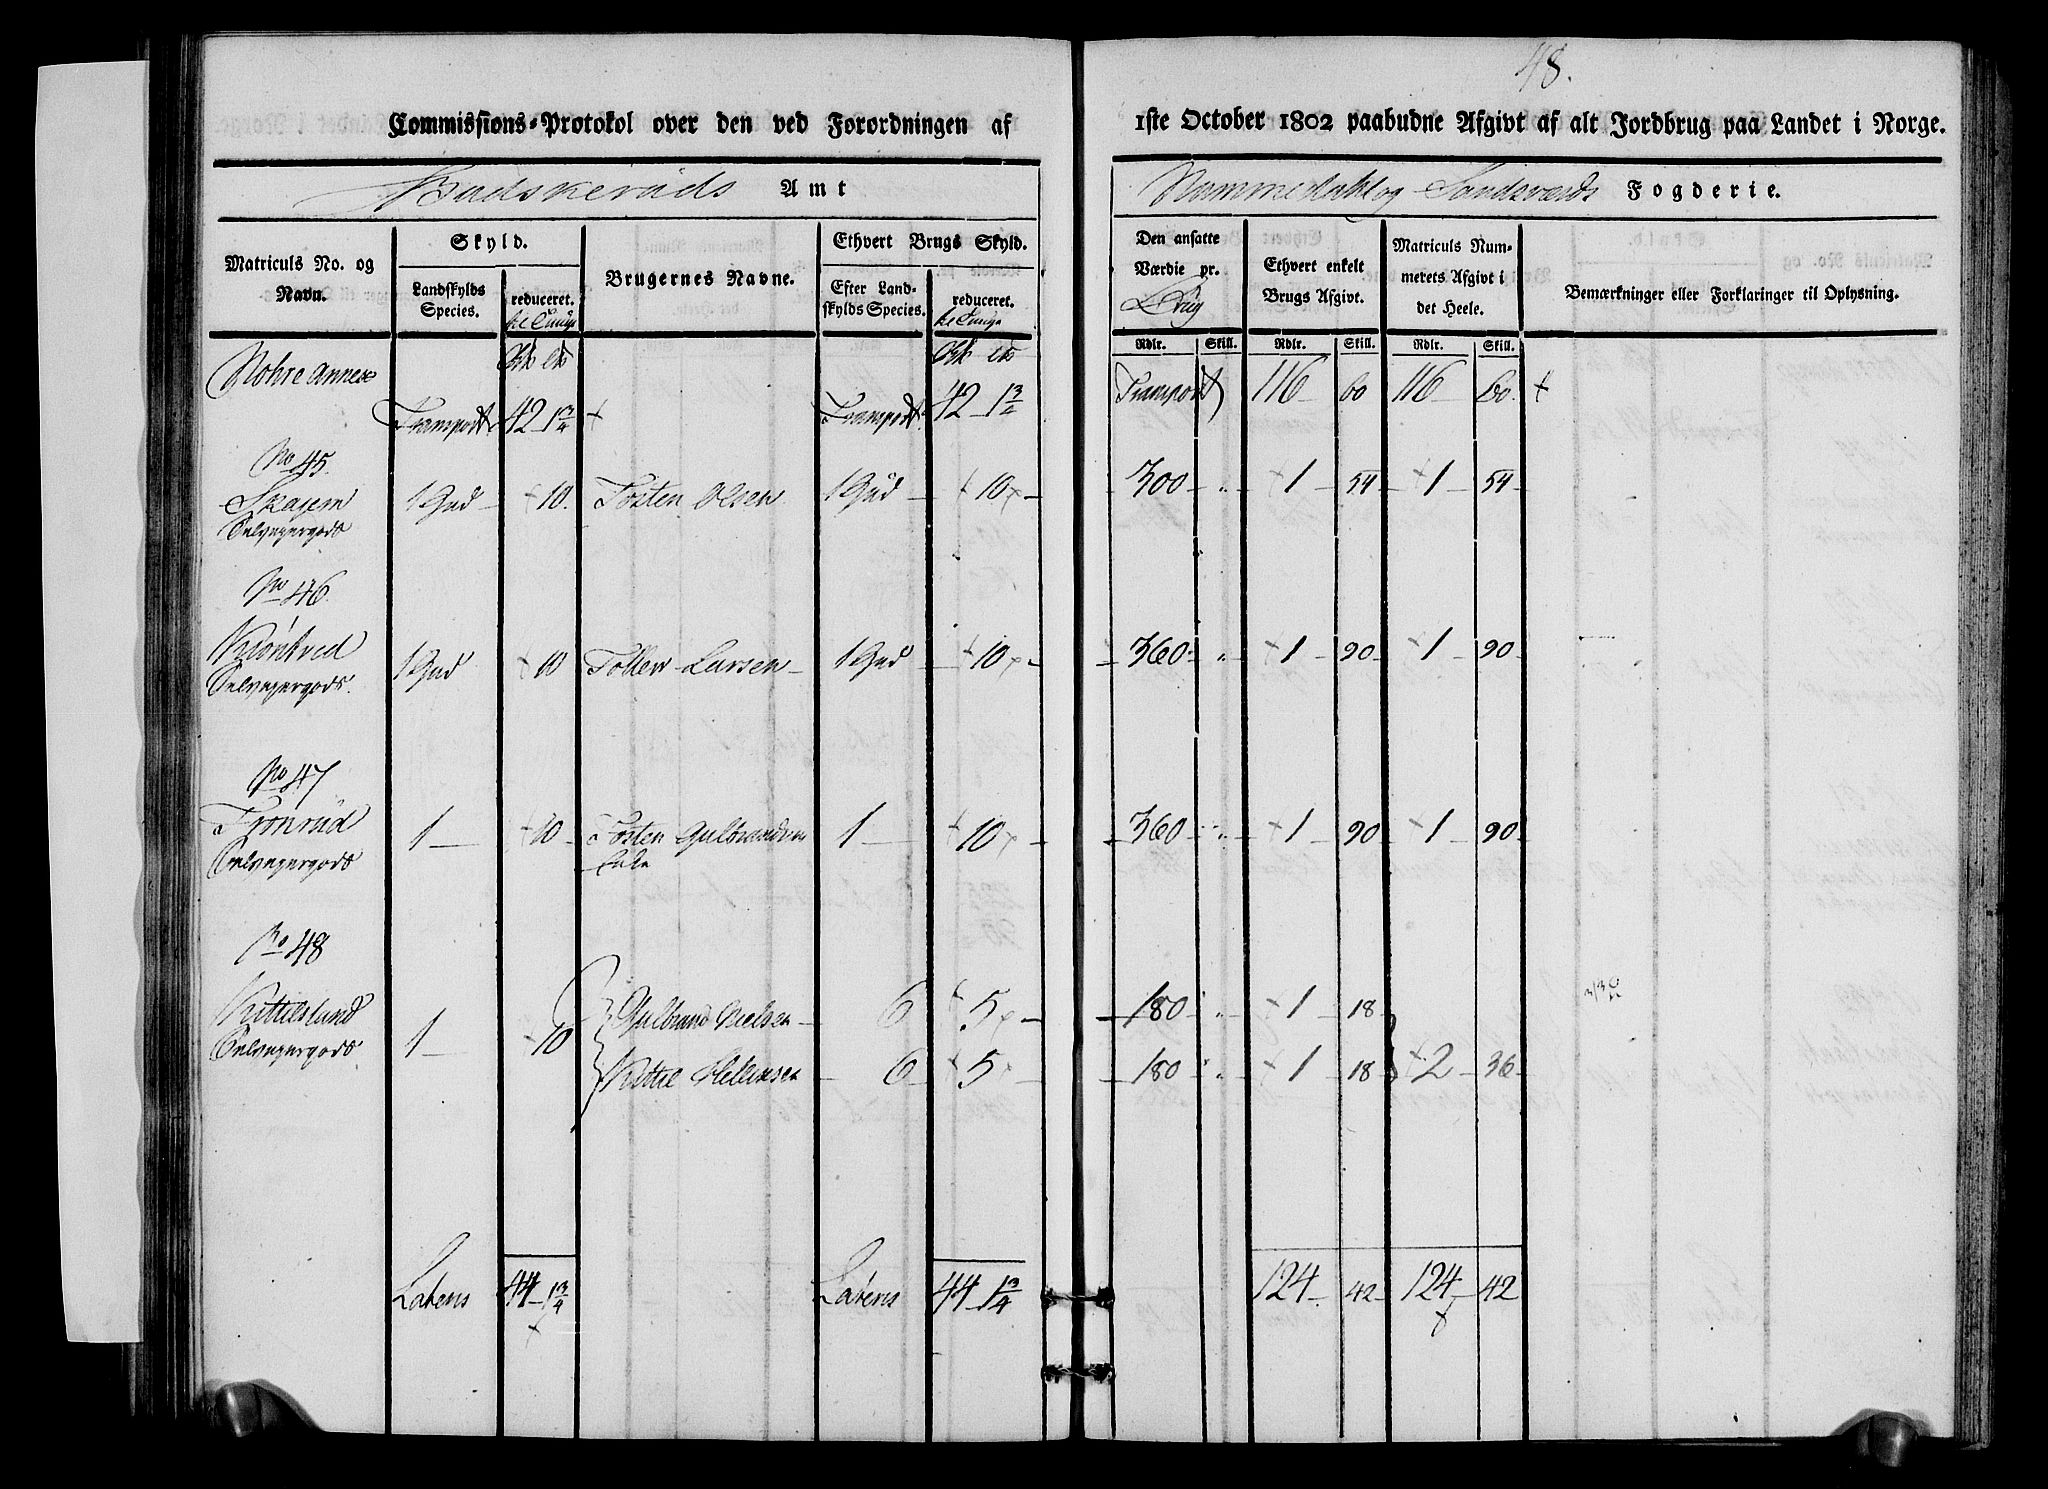 48.
Commissions-Protokol over den ved Forordningen af 1ste October 1802 paabudne Afgivt af alt Jordbrug paa Landet i Norge.
Budskeruds Amt
Nummedahl og Sandsværds Fogderie.
Matriculs No. og Navn.
Skyld.
Landskylds Species.
reduceret.
Brugernes Navne.
Ethvert Brugs Skyld.
Efter Landskylds Species.
reduceret.
Den ansatte Værdie pr. Brug
Ethvert enkelt Brugs Afgivt.
Matriculs Nummerets Afgivt i det Heele.
Bemærkninger eller Forklaringer til Oplysning.
Rdlr. Skill. Rdlr. Skill. Rdlr. Skill.
Nohre Annex
Transport 42 - 1 3/4 Transport 42 - 1 3/4 Transport 116 - 60 116 - 60
No 45
Skajem 1 Hud - 10. Tosten Olsen 1 Hud - 10 - 300 - 1 54 - 1 - 54 -
Selveyergods
No 46
Kjøntved 1 Hud 10 Tollew Larsen - 1 Hud - 10 - 360 - 1 90 - 1 - 90 -
Selveyergods.
No 47
Tronrud 1 - 10 Tosten Gulbrandsen 1 - 10 - 360 - 1 90 - 1 - 90 -
Selveyergods Enke
No 48
Kittelsland 1 - 10 Gulbrand Nielsen - 6 5 - 180 - 1 18 -
Selveyergods Kittel Hellensen - 6 - 5 - 180 - 1 18 2 - 36 -
Lateris 44 - 1 3/4 Lateris 44 - 1 3/4 124 - 42 - 124 - 42